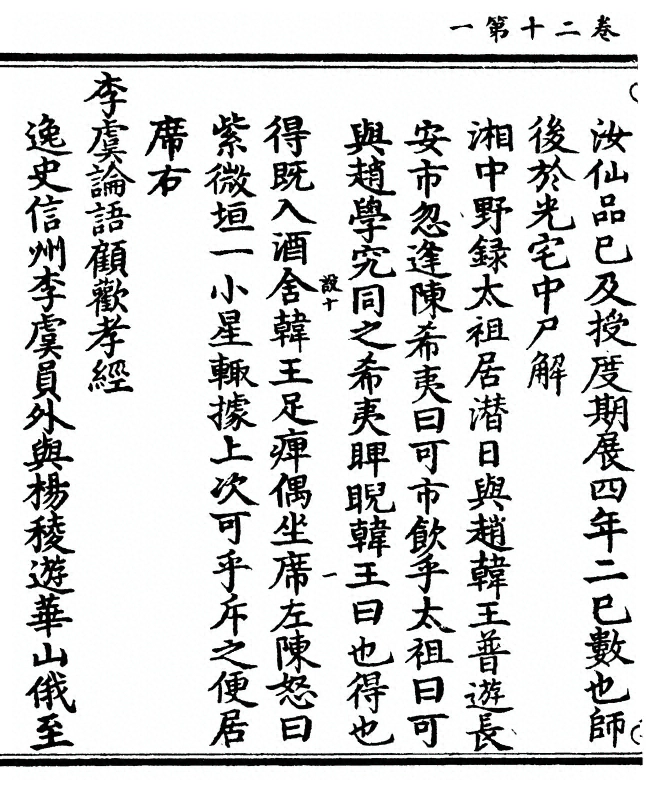 卷二十第一
汝仙品已及授度期展四年二已數也師
後於光宅中尸解
湘中野録太祖居潜日與趙韓王普遊長
安市忽逢陳希夷曰可市飲乎太祖曰可
與趙學究同之希夷睥睨韓王曰也得也
設十
得既入酒舍韓王足痺偶坐席左陳怒曰
紫微垣一小星輙據上次可乎斥之便居
席右
李虞論語顧歡孝經
逸史信州李虞員外與楊稜遊華山俄至